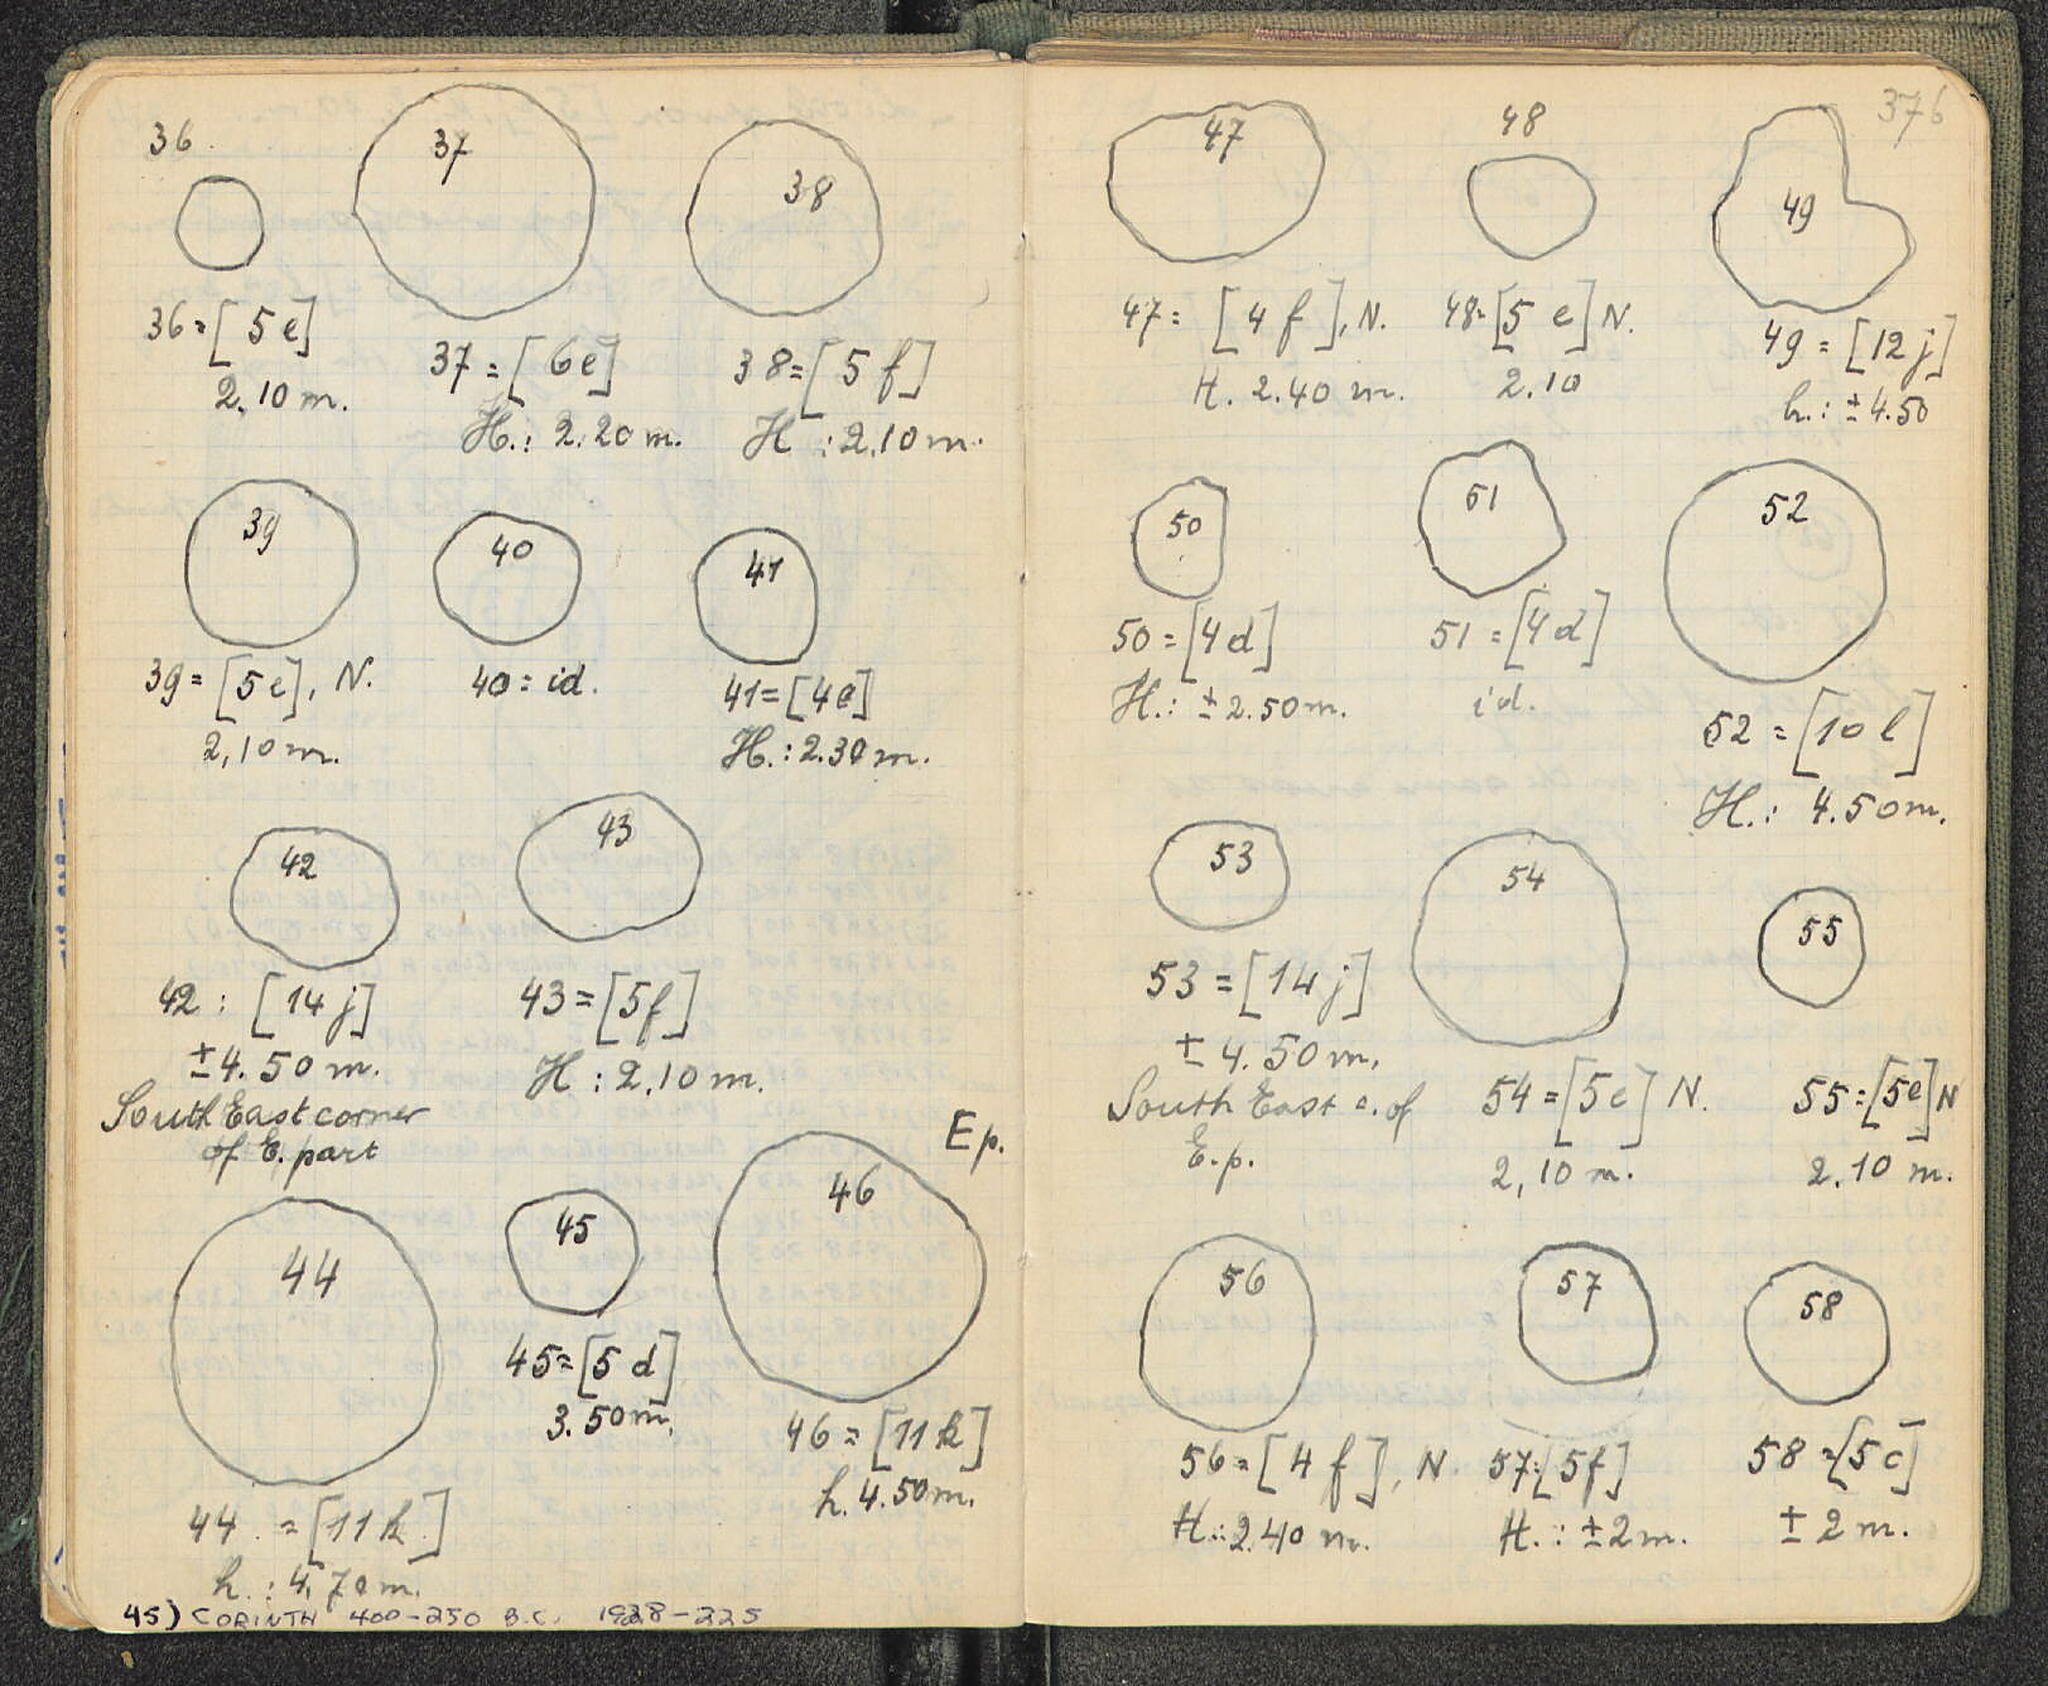 36
37
38
36 = [5 e]
2.10 m.
37 = [6e]
H.: 2.20 m.
38 = [5 f]
H : 2.10 m.
39
40
41
39 = [5e], N.
2,10 m.
40 = id.
41 = [4e]
H.: 2.30 m.
42
43
42 : [14 j]
± 4.50 m.
South East corner
of E. part
43 = [5f]
H : 2.10 m.
44
45
46
E p.
45 = [5 d]
3.50 m.
46 = [11 k]
h. 4.50 m.
44 = [11 k]
h. : 4.70 m.
45) CORINTH 400-250 B.C. 1928-225
376
47
48
49
47 = [4 f], N.
H. 2.40 m.
48 = [5 e] N.
2.10
49 = [12 j]
h.: ± 4.50
50
51
52
50 = [4 d]
H.: ± 2.50 m.
51 = [4 d]
id.
52 = [10 l]
H.: 4.50 m.
53
54
55
53 = [14 j]
± 4.50 m.
South East c. of
E.p.
54 = [5e] N.
2,10 m.
55 = [5e] N
2.10 m.
56
57
58
56 = [4 f], N.
H.: 2.40 m.
57 = [5f]
H. : ± 2 m.
58 = [5 c]
± 2 m.